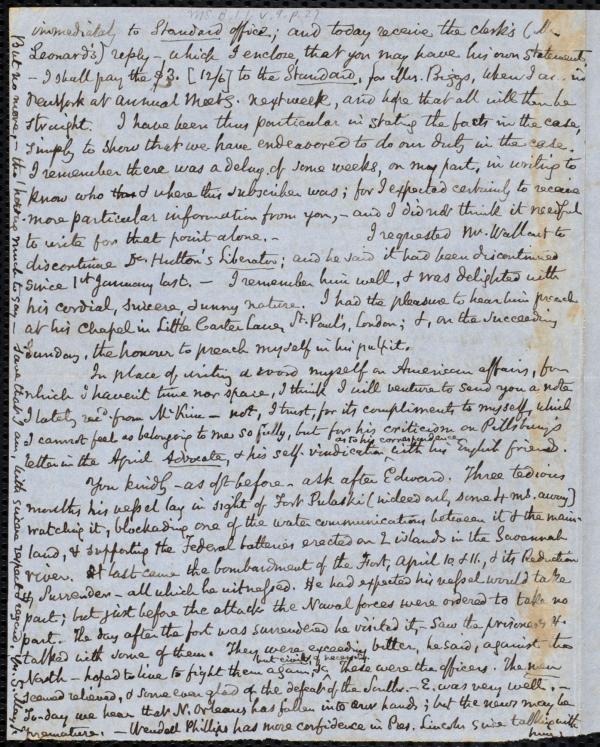 MS. B.1.6 v.9. p.27
immediately to Standard office; and today receive the clerk's (Mr.
Leonard's) reply – which I enclose that you may have his own statement.
– I shall pay the $3. [12/6] to the Standard, for Mrs. Briggs, when I am in
New York at annual Meetg. next week, and hope that all will then be
straight. I have been thus particular in stating the facts in the case,
simply to show that we have endeavored to do our duty in the case.
I remember there was a delay of some weeks, on my part, in writing to
know who & where this subscriber was; for I expected certainly to receive
more particular information from you, – and I did not think it needful
to write for that point alone. – I requested Mr. Wallcut to
discontinue Dr. Hutton's Liberator; and he said it had been discontinued
since 1st January last. – I remember him well, & was delighted with
his cordial, sincere, sunny nature. I had the pleasure to hear him preach
at his chapel in Little Carter Lane, St. Paul's, London; &, on the succeeding
Sunday, the honour to preach myself in his pulpit.
In place of writing a word myself on American affairs, for
which I haven't time nor space, I think I will venture to send you a note
I lately recd. from McKim – not, I trust, for its compliments to myself, which
I cannot feel as belonging to me so fully, but for his criticism on Pittsburg's
as to his correspondence
letter in the April Advocate, & his self-vindication with his English friend.
You kindly – as oft before – ask after Edward. Three tedious
months his vessel lay in sight of Fort Pulaski (indeed only some 4 ms. away)
watching it, blockading one of the water communications between it & the main-
land, & supporting the Federal batteries erected on 2 islands in the Savannah
river. At last came the bombardment of the Fort, April 10 & 11, & its Reduction
& Surrender – all which he witnessed. He had expected his vessel would take
part; but just before the attack the Naval forces were ordered to take no
part. The day after the fort was surrendered he visited it, – saw the prisoners &
talked with some of them. They were exceeding bitter, he said, against the
North – hoped to live to fight them again, &c. These were the officers. The men
seemed relieved, & some even glad of the defeat of the South. – E. was very well. –
Sunday we hear that N. Orleans has fallen into our hands; but the news may be
premature. – Wendell Phillips has more confidence in Pres. Lincoln since talking with
him.
But no more – tho' having much to say – save that I am, with sincere respect & regard, Yrs. S. May Jr.